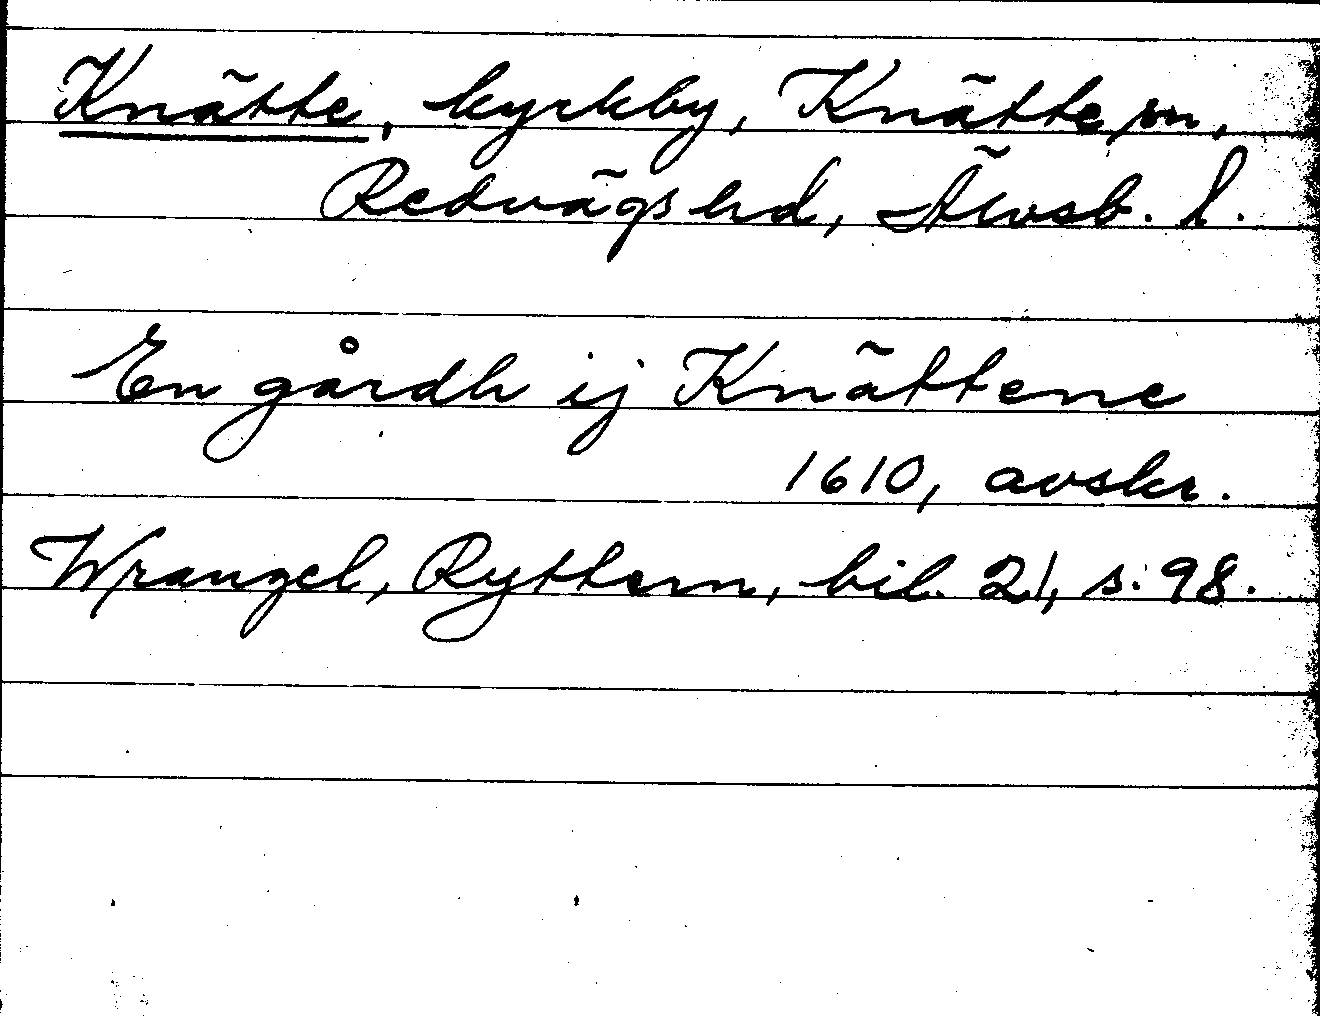 Knätte, kyrkby, Knätte sn,
Redvägs hd, Älvsb. l.
En gårdh ij Knättene
1610, avskr.
Wrangel, Ryttern, bil. 21, s. 98.